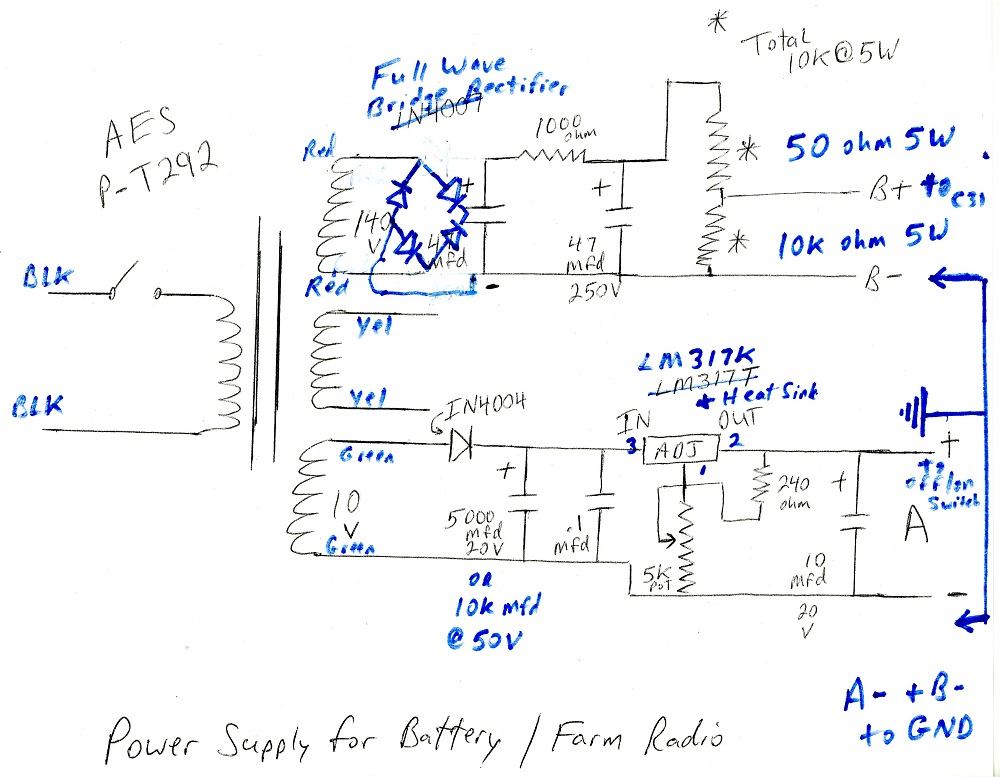 *
Total
10K@5W
Full Wave
Bridge Rectifier
IN4007
AES
P-T292
Red
1000
ohm
*
50 ohm 5W
B+ to C31
*
10K ohm 5W
B-
+
140
V
47
mfd
-
+
47
mfd
250V
Red
BLK
BLK
Yel
Yel
IN4004
LM317K
LM317T
+ Heat Sink
IN
OUT
3
ADJ
2
1
Green
10
V
Green
+
5000
mfd
20V
.1
mfd
OR
10K mfd
@ 50V
5K
POT
240
ohm
+
10
mfd
20
V
+
To
off/on
Switch
A
-
A- + B-
to GND
Power Supply for Battery / Farm Radio